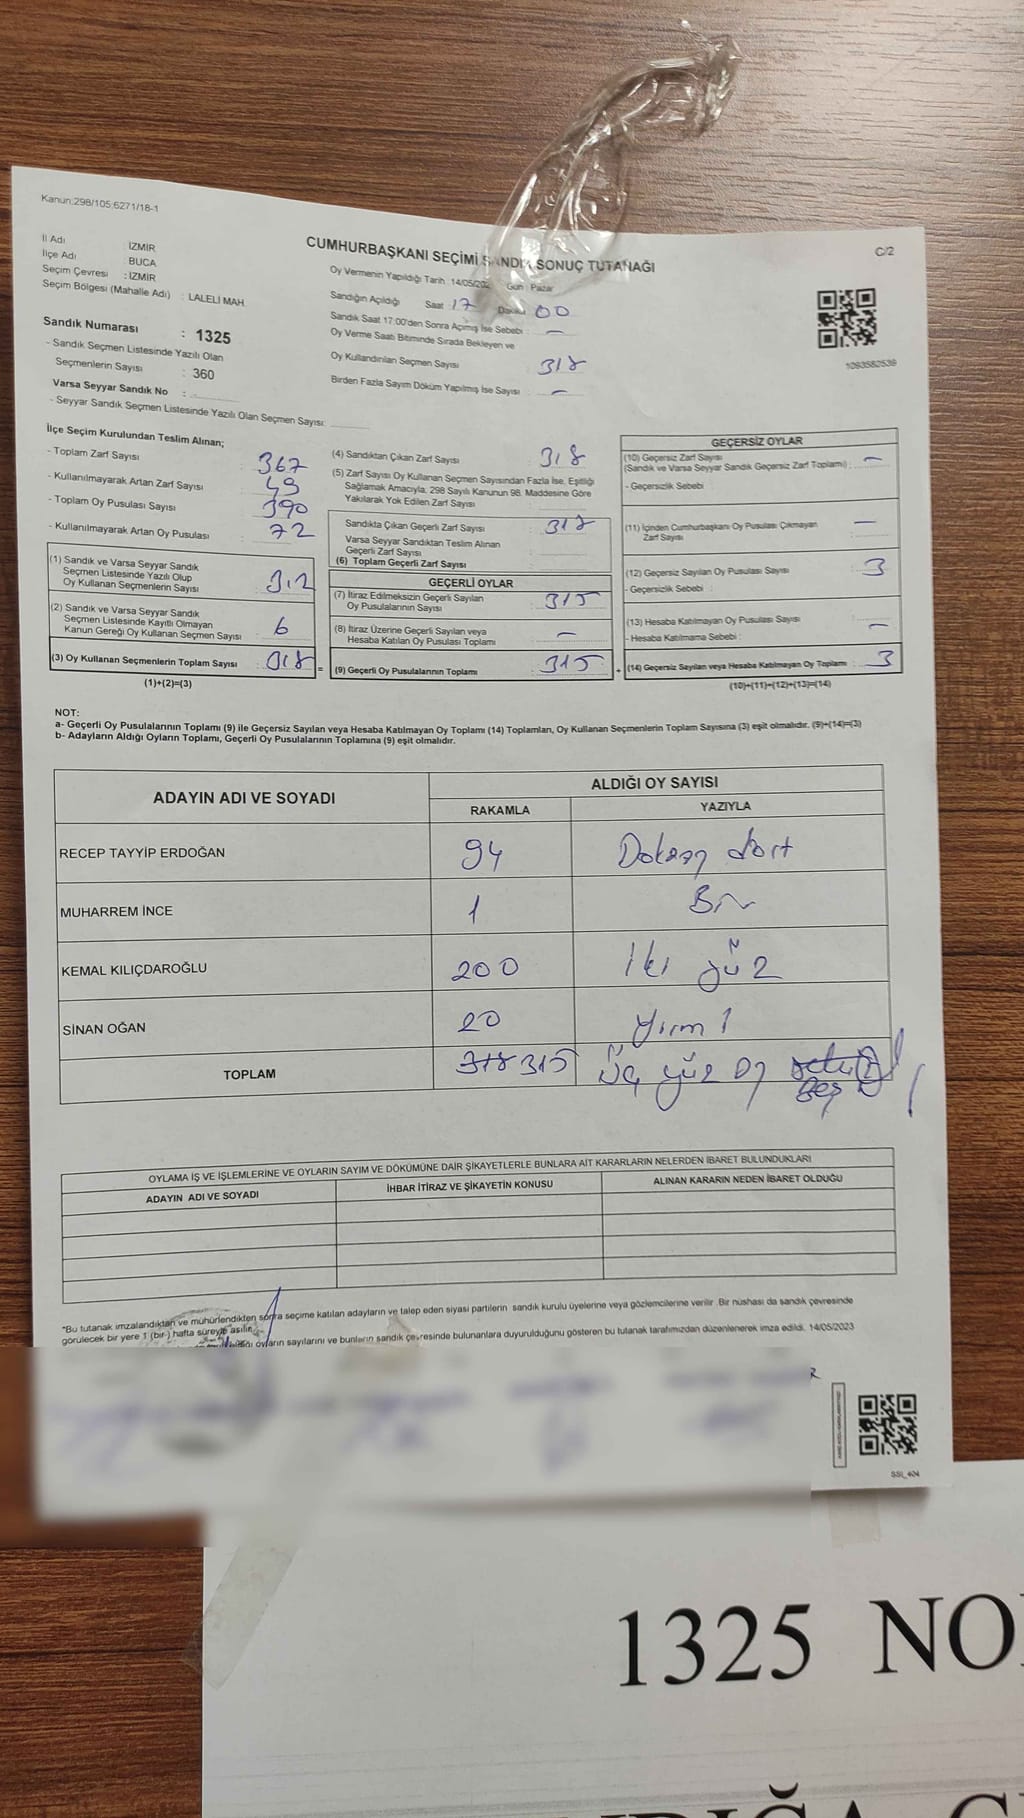 Kanun:298/105;6271/18-1
C/2
CUMHURBAŞKANI SEÇİMİ SANDIK SONUÇ TUTANAĞI
İl Adı İZMİR
İlçe Adı BUCA
Seçim Çevresi : İZMİR
Seçim Bölgesi (Mahalle Adı) : LALELİ MAH.
Sandık Numarası : 1325
- Sandık Seçmen Listesinde Yazılı Olan
Seçmenlerin Sayısı : 360
Varsa Seyyar Sandık No :
- Seyyar Sandık Seçmen Listesinde Yazılı Olan Seçmen Sayısı:
Oy Vermenin Yapıldığı Tarih :14/05/202 Gün : Pazar
Sandığın Açıldığı Saat 17 Dakika 00
Sandık Saat 17:00'den Sonra Açımış İse Sebebi : —
Oy Verme Saati Bitiminde Sırada Bekleyen ve
Oy Kullandırılan Seçmen Sayısı 318
Birden Fazla Sayım Döküm Yapılmış İse Sayısı : —
1093582539
İlçe Seçim Kurulundan Teslim Alınan;
- Toplam Zarf Sayısı : 367
- Kullanılmayarak Artan Zarf Sayısı : 49
- Toplam Oy Pusulası Sayısı : 390
- Kullanılmayarak Artan Oy Pusulası : 72
(1) Sandık ve Varsa Seyyar Sandık
Seçmen Listesinde Yazılı Olup
Oy Kullanan Seçmenlerin Sayısı : 312
(2) Sandık ve Varsa Seyyar Sandık
Seçmen Listesinde Kayıtlı Olmayan
Kanun Gereği Oy Kullanan Seçmen Sayısı : 6
(3) Oy Kullanan Seçmenlerin Toplam Sayısı : 318 =
(1)+(2)=(3)
(4) Sandıktan Çıkan Zarf Sayısı : 318
(5) Zarf Sayısı Oy Kullanan Seçmen Sayısından Fazla İse, Eşitliği
Sağlamak Amacıyla, 298 Sayılı Kanunun 98. Maddesine Göre
Yakılarak Yok Edilen Zarf Sayısı :
Sandıkta Çıkan Geçerli Zarf Sayısı : 318
Varsa Seyyar Sandıktan Teslim Alınan
Geçerli Zarf Sayısı
(6) Toplam Geçerli Zarf Sayısı
GEÇERLİ OYLAR
(7) İtiraz Edilmeksizin Geçerli Sayılan
Oy Pusulalarının Sayısı : 315
(8) İtiraz Üzerine Geçerli Sayılan veya
Hesaba Katılan Oy Pusulası Toplamı : —
(9) Geçerli Oy Pusulalarının Toplamı : 315 +
GEÇERSİZ OYLAR
(10) Geçersiz Zarf Sayısı —
(Sandık ve Varsa Seyyar Sandık Geçersiz Zarf Toplamı) :
- Geçersizlik Sebebi
(11) İçinden Cumhurbaşkanı Oy Pusulası Çıkmayan —
Zarf Sayısı :
(12) Geçersiz Sayılan Oy Pusulası Sayısı : 3
- Geçersizlik Sebebi :
(13) Hesaba Katılmayan Oy Pusulası Sayısı : —
- Hesaba Katılmama Sebebi :
(14) Geçersiz Sayılan veya Hesaba Katılmayan Oy Toplamı : 3
(10)+(11)+(12)+(13)=(14)
NOT:
a- Geçerli Oy Pusulalarının Toplamı (9) ile Geçersiz Sayılan veya Hesaba Katılmayan Oy Toplamı (14) Toplamları, Oy Kullanan Seçmenlerin Toplam Sayısına (3) eşit olmalıdır. (9)+(14)=(3)
b- Adayların Aldığı Oyların Toplamı, Geçerli Oy Pusulalarının Toplamına (9) eşit olmalıdır.
ADAYIN ADI VE SOYADI ALDIĞI OY SAYISI
RAKAMLA YAZIYLA
RECEP TAYYİP ERDOĞAN 94 Doksan dört
MUHARREM İNCE 1 Bir
KEMAL KILIÇDAROĞLU 200 İki yüz
SİNAN OĞAN 20 Yirmi
TOPLAM 318 315 Üç yüz on sekiz beş
OYLAMA İŞ VE İŞLEMLERİNE VE OYLARIN SAYIM VE DÖKÜMÜNE DAİR ŞİKAYETLERLE BUNLARA AİT KARARLARIN NELERDEN İBARET BULUNDUKLARI
ADAYIN ADI VE SOYADI İHBAR İTİRAZ VE ŞİKAYETİN KONUSU ALINAN KARARIN NEDEN İBARET OLDUĞU
*Bu tutanak imzalandıktan ve mühürlendikten sonra seçime katılan adayların ve talep eden siyasi partilerin sandık kurulu üyelerine veya gözlemcilerine verilir .Bir nüshası da sandık çevresinde
görülecek bir yere 1 (bir ) hafta süreyle asılır.
oyların sayılarını ve bunların sandık çevresinde bulunanlara duyurulduğunu gösteren bu tutanak tarafımızdan düzenlenerek imza edildi. 14/05/2023
SSI_404
1325 NO